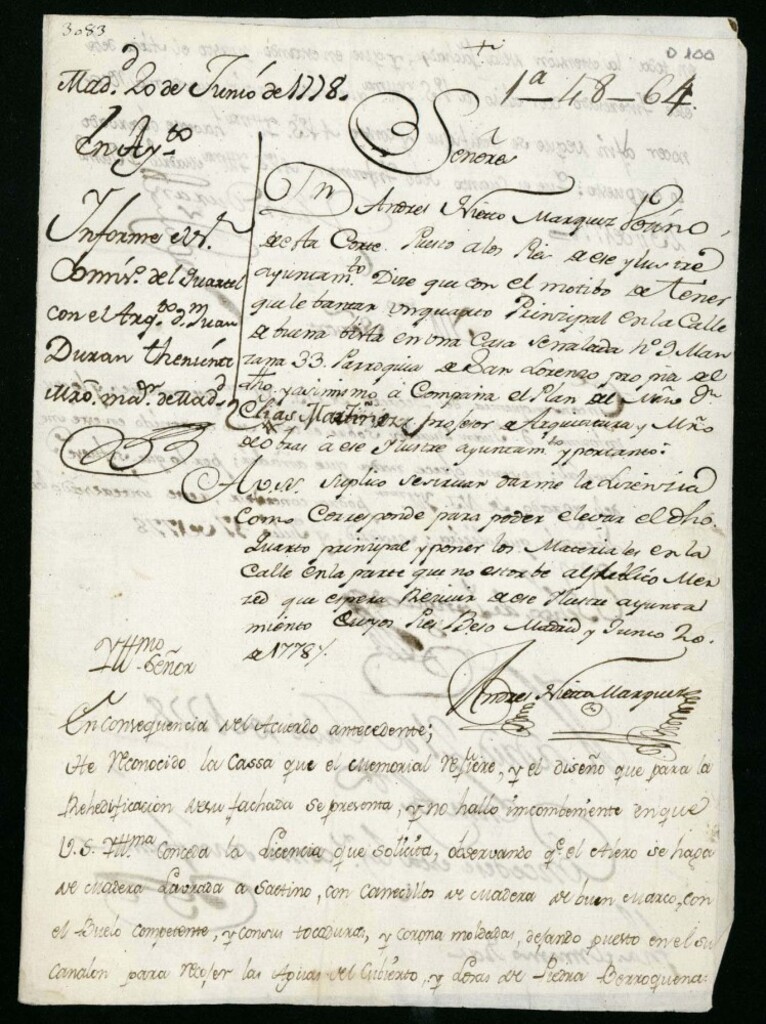 3083
D 100
Mad.d 20 de Junio de 1778.
1a-48-64.
En Ay.to
Señores
Informe el S.r
Comis.o del Quartel
con el Arq.to d.n Juan
Duran theniente
Mro. ma.r de Mad.d
Dn Andres Nieto Marquez Vecino
de esta Corte. Puesto a los Pies de ese ylustre
ayuntam.to Dize que con el motibo de tener
que lebantar un quarto Principal en la Calle
de buena bista en una Casa señalada nº 9 Man
zana 33. Parroquia de San Lorenzo propia del
dho. y asimismo á Compaña el Plan del Nuevo Dn
Elias Martinez, profesor de Arquitectura y Mro
de Obras á ese Ilustre ayuntam.to y portanto:
A V.S. Suplico se sirban darme la Lizenzia
como Corresponde para poder elevar el dho.
Quarto principal y poner los Materiales en la
Calle en la parte que no estorbe al publico Mer
zed que espera Recivir de ese Ilustre ayunta
miento Cuyos Pies Beso Madrid y Junio 20.
de 1778.
Andres Nieto Marquez
Yll.mo Señor
En consequencia del Acuerdo antecedente;
He reconocido la Cassa que el memorial refiere, y el diseño que para la
Rehedificacion de su fachada se presenta, y no hallo incombeniente en que
V.S. Yll.ma conceda la Licencia que solicita, observando q.e el Alero se haga
de madera Labrada a Saetino, con Canecillos de madera de buen marco, con
el Buelo competente, y con sus tocaduras, y corona moldadas, dejando puesto en el su
Canalon para recojer las Aguas del Cubierto, y Losas de Piedra Berroqueña